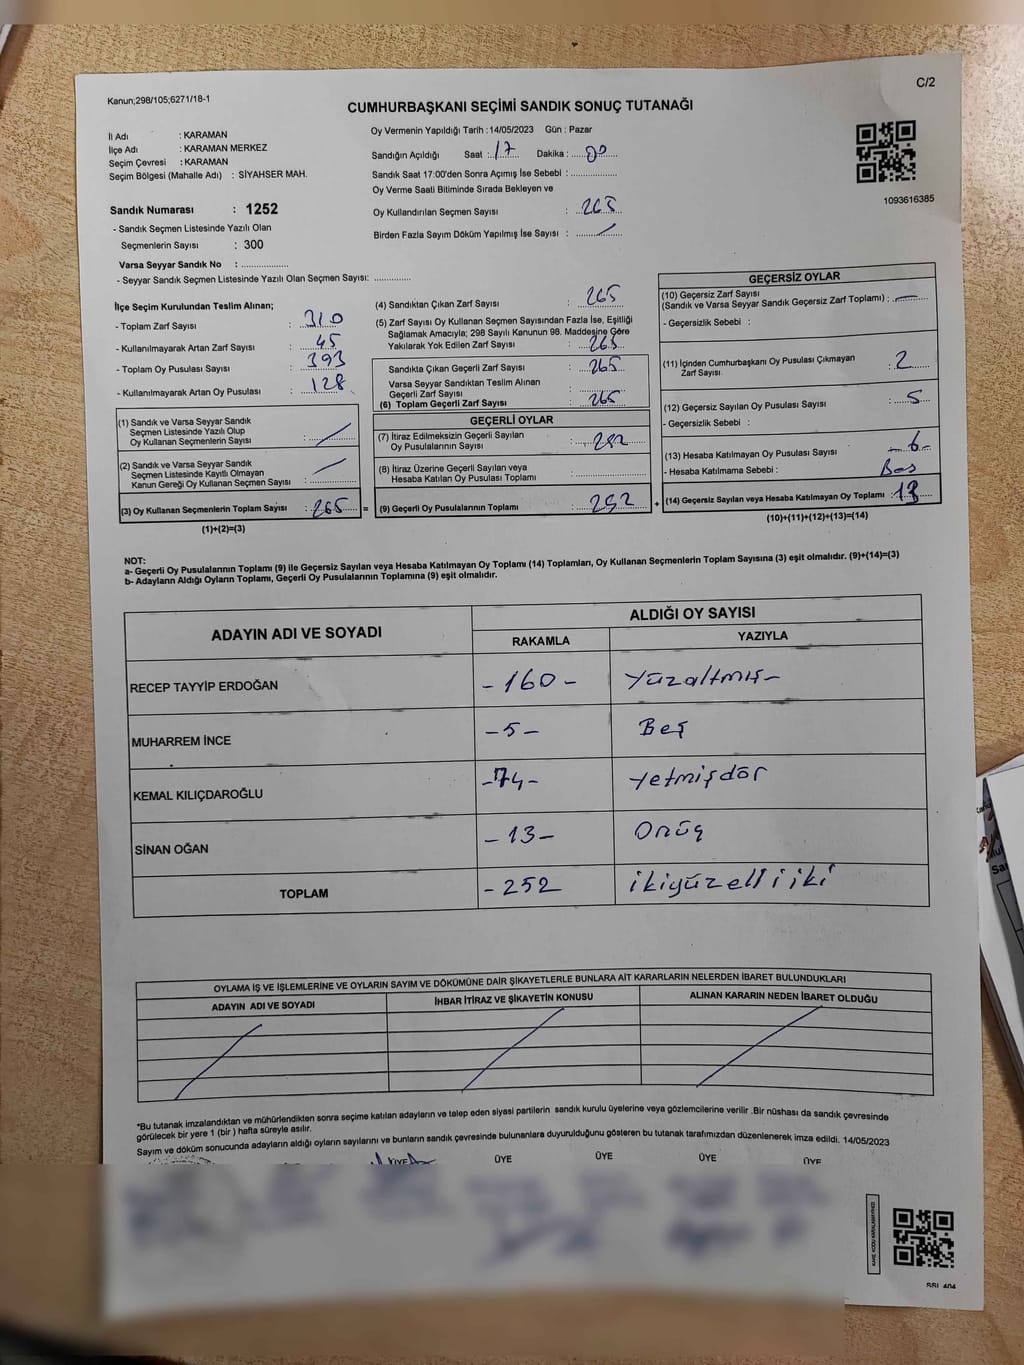 Kanun;298/105;6271/18-1
C/2
CUMHURBAŞKANI SEÇİMİ SANDIK SONUÇ TUTANAĞI
İl Adı : KARAMAN
İlçe Adı : KARAMAN MERKEZ
Seçim Çevresi : KARAMAN
Seçim Bölgesi (Mahalle Adı) : SİYAHSER MAH.
Sandık Numarası : 1252
- Sandık Seçmen Listesinde Yazılı Olan
Seçmenlerin Sayısı : 300
Varsa Seyyar Sandık No : ..................
- Seyyar Sandık Seçmen Listesinde Yazılı Olan Seçmen Sayısı: .............
Oy Vermenin Yapıldığı Tarih : 14/05/2023 Gün : Pazar
Sandığın Açıldığı Saat : 17 Dakika : 00
Sandık Saat 17:00'den Sonra Açımış İse Sebebi : ..................
Oy Verme Saati Bitiminde Sırada Bekleyen ve
Oy Kullandırılan Seçmen Sayısı : 265
Birden Fazla Sayım Döküm Yapılmış İse Sayısı :
1093616385
İlçe Seçim Kurulundan Teslim Alınan;
- Toplam Zarf Sayısı : 310
- Kullanılmayarak Artan Zarf Sayısı : 45
- Toplam Oy Pusulası Sayısı : 393
- Kullanılmayarak Artan Oy Pusulası : 128
(1) Sandık ve Varsa Seyyar Sandık
Seçmen Listesinde Yazılı Olup
Oy Kullanan Seçmenlerin Sayısı :
(2) Sandık ve Varsa Seyyar Sandık
Seçmen Listesinde Kayıtlı Olmayan
Kanun Gereği Oy Kullanan Seçmen Sayısı :
(3) Oy Kullanan Seçmenlerin Toplam Sayısı : 265 =
(1)+(2)=(3)
(4) Sandıktan Çıkan Zarf Sayısı : 265
(5) Zarf Sayısı Oy Kullanan Seçmen Sayısından Fazla İse, Eşitliği
Sağlamak Amacıyla; 298 Sayılı Kanunun 98. Maddesine Göre
Yakılarak Yok Edilen Zarf Sayısı : 265
Sandıkta Çıkan Geçerli Zarf Sayısı : 265
Varsa Seyyar Sandıktan Teslim Alınan
Geçerli Zarf Sayısı
(6) Toplam Geçerli Zarf Sayısı : 265
GEÇERLİ OYLAR
(7) İtiraz Edilmeksizin Geçerli Sayılan
Oy Pusulalarının Sayısı : 252
(8) İtiraz Üzerine Geçerli Sayılan veya
Hesaba Katılan Oy Pusulası Toplamı :
(9) Geçerli Oy Pusulalarının Toplamı : 252 +
GEÇERSİZ OYLAR
(10) Geçersiz Zarf Sayısı
(Sandık ve Varsa Seyyar Sandık Geçersiz Zarf Toplamı) : —
- Geçersizlik Sebebi :
(11) İçinden Cumhurbaşkanı Oy Pusulası Çıkmayan
Zarf Sayısı : 2
(12) Geçersiz Sayılan Oy Pusulası Sayısı : 5
- Geçersizlik Sebebi :
(13) Hesaba Katılmayan Oy Pusulası Sayısı - 6 -
- Hesaba Katılmama Sebebi : Bos
(14) Geçersiz Sayılan veya Hesaba Katılmayan Oy Toplamı : 13
(10)+(11)+(12)+(13)=(14)
NOT:
a- Geçerli Oy Pusulalarının Toplamı (9) ile Geçersiz Sayılan veya Hesaba Katılmayan Oy Toplamı (14) Toplamları, Oy Kullanan Seçmenlerin Toplam Sayısına (3) eşit olmalıdır. (9)+(14)=(3)
b- Adayların Aldığı Oyların Toplamı, Geçerli Oy Pusulalarının Toplamına (9) eşit olmalıdır.
ADAYIN ADI VE SOYADI
ALDIĞI OY SAYISI
RAKAMLA YAZIYLA
RECEP TAYYİP ERDOĞAN - 160 - Yüzaltmış -
MUHARREM İNCE - 5 - Beş
KEMAL KILIÇDAROĞLU - 74 - Yetmişdör
SİNAN OĞAN - 13 - Onüç
TOPLAM - 252 ikiyüzelliiki
OYLAMA İŞ VE İŞLEMLERİNE VE OYLARIN SAYIM VE DÖKÜMÜNE DAİR ŞİKAYETLERLE BUNLARA AİT KARARLARIN NELERDEN İBARET BULUNDUKLARI
ADAYIN ADI VE SOYADI İHBAR İTİRAZ VE ŞİKAYETİN KONUSU ALINAN KARARIN NEDEN İBARET OLDUĞU
*Bu tutanak imzalandıktan ve mühürlendikten sonra seçime katılan adayların ve talep eden siyasi partilerin sandık kurulu üyelerine veya gözlemcilerine verilir .Bir nüshası da sandık çevresinde
görülecek bir yere 1 (bir ) hafta süreyle asılır.
Sayım ve döküm sonucunda adayların aldığı oyların sayılarını ve bunların sandık çevresinde bulunanlara duyurulduğunu gösteren bu tutanak tarafımızdan düzenlenerek imza edildi. 14/05/2023
ÜYE ÜYE ÜYE ÜYE ÜYE